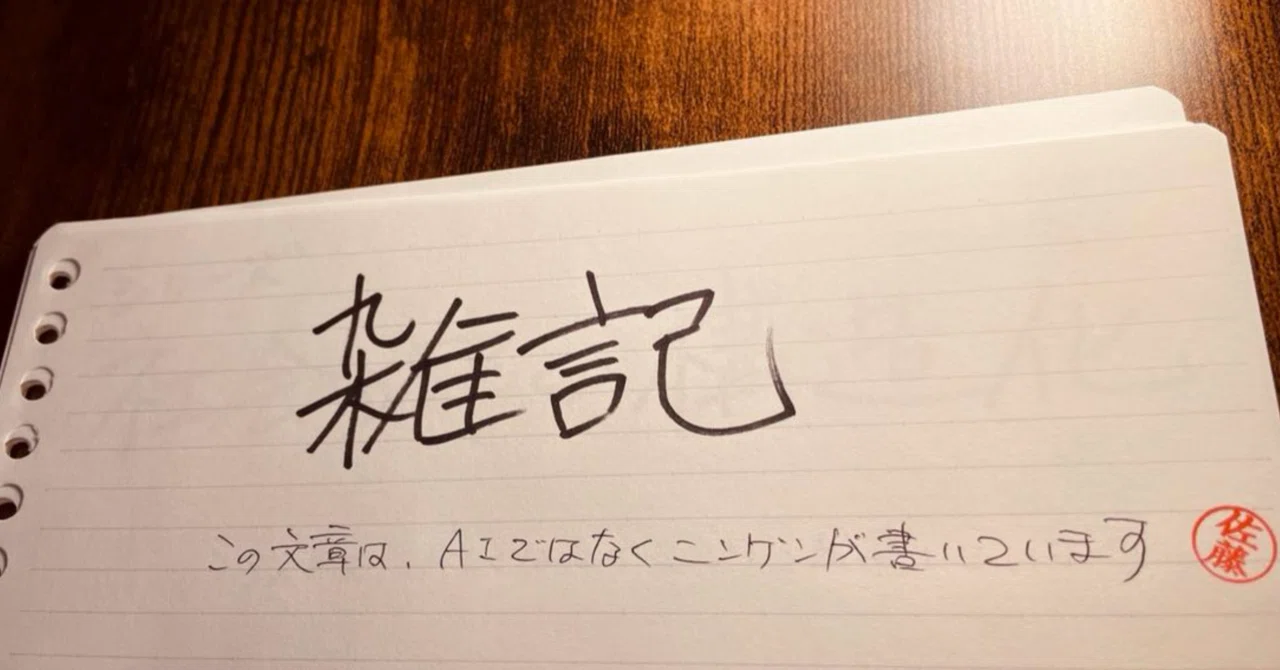 雑記
この文章は、AIではなくニンゲンが書いています
佐藤